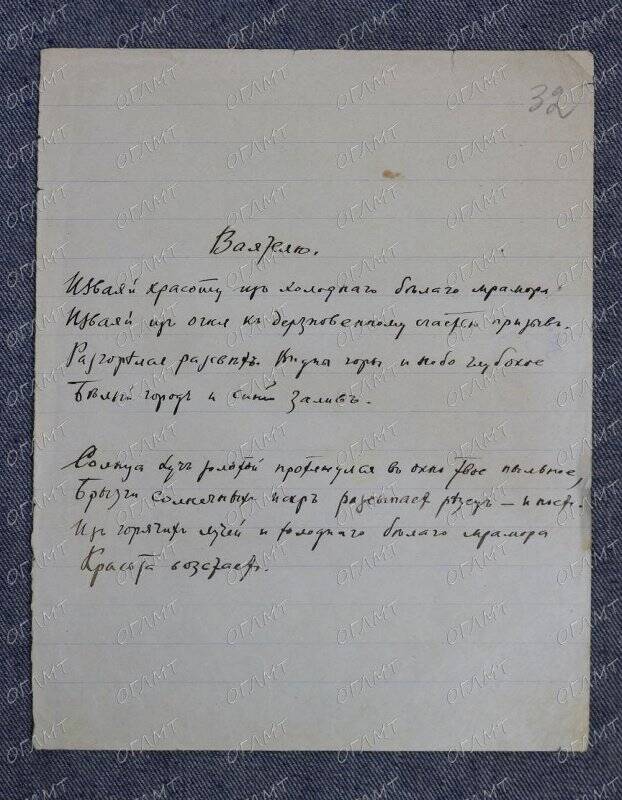 32
Ваятелю.
Изваяй красоту изъ холоднаго бѣлаго мрамора
Изваяй изъ огня къ дерзновенному счастью призывъ.
Разгорѣлся разсвѣтъ. Видны горы и небо глубокое
Бѣлый городъ и синій заливъ.
Солнца лучъ золотой протянулся въ окно твое пыльное,
Брызги солнечныхъ искръ разсыпаетъ рѣзецъ – и поетъ.
Изъ горячихъ лучей и холоднаго бѣлаго мрамора
Красота возстаетъ.